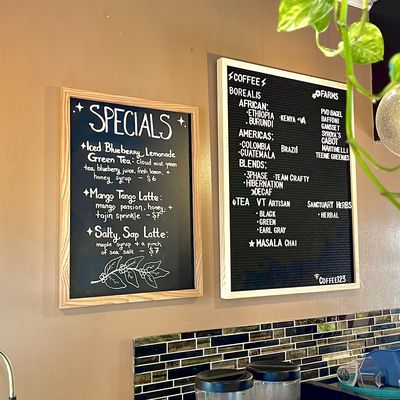 SPECIALS
Iced Blueberry Lemonade
Green Tea - cloud mist green
tea, blueberry juice, fresh lemon, +
honey syrup - $6
Mango Tango Latte:
mango passion, honey, +
tajin sprinkle - $7
Salty, Sap Latte:
maple syrup + a punch
of smoked salt - $7
COFFEE
BOREALIS
AFRICAN:
-ETHIOPIA -KENYA
BURUNDI
AMERICAS:
-COLOMBIA BRAZIL
-GUATEMALA
BLENDS:
-3PHASE -TEAM CRAFTY
-HIBERNATION
DECAF
TEA VT ARTISAN
-BLACK
-GREEN
-EARL GRAY
MASALA CHAI
FARMS
PVD BAGEL
BAFFONI
GANSETT
CABOT
MARTINELLI
TEENIE GREENIES
SANCTUARY HERBS
-HERBAL
COFFEE123